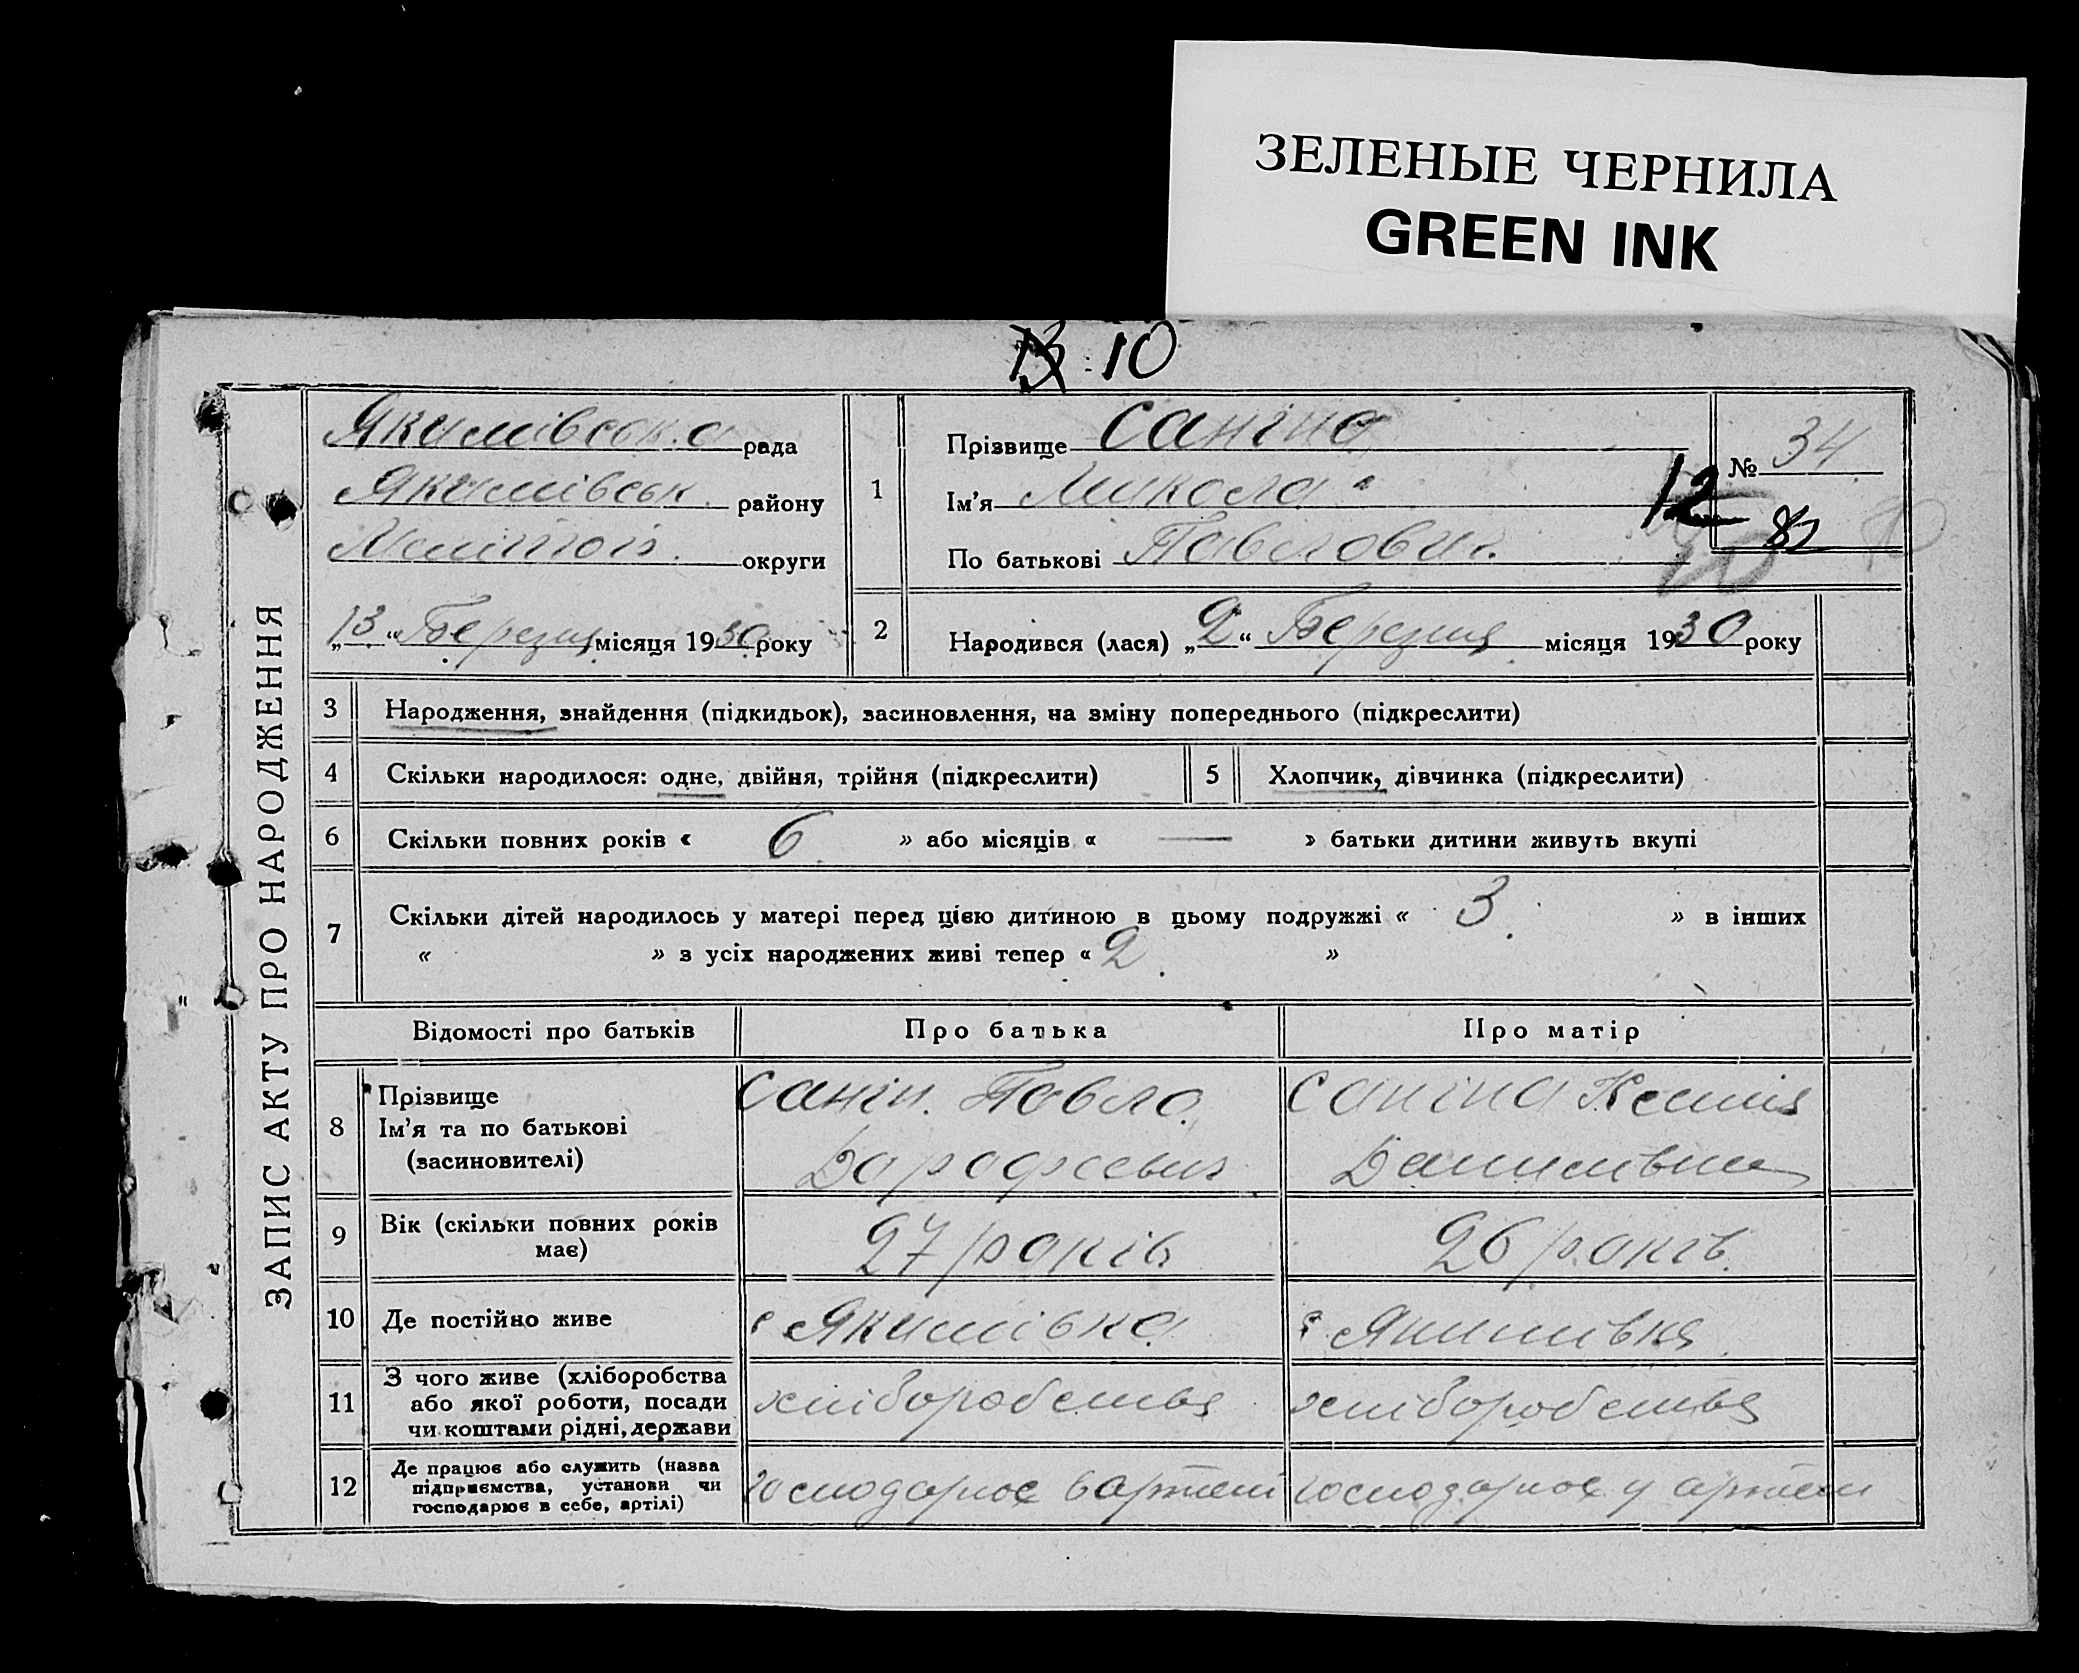 ЗЕЛЕНЫЕ ЧЕРНИЛА
GREEN INK
10
ЗАПИС АКТУ ПРО НАРОДЖЕННЯ
Якимівська рада
Якимівськ. району
Меліттоп. округи
„13“ Березня місяця 1930 року
1
Прізвище Сангіна
Ім'я Микола
По батькові Павлович.
№ 34
12
82
2 Народився (лася) „2“ Березня місяця 1930 року
3 Народження, знайдення (підкидьок), засиновлення, на зміну попереднього (підкреслити)
4 Скільки народилося: одне, двійня, трійня (підкреслити)
5 Хлопчик, дівчинка (підкреслити)
6 Скільки повних років « 6 » або місяців « — » батьки дитини живуть вкупі
7 Скільки дітей народилось у матері перед цією дитиною в цьому подружжі « 3. » в інших
« » з усіх народжених живі тепер « 2. »
Відомості про батьків Про батька Про матір
8 Прізвище
Ім'я та по батькові
(засиновителі)
Сангін. Павло
Дорофеевич
Сангіна Ксенія
Данилівна
9 Вік (скільки повних років
має)
27 років
26 років.
10 Де постійно живе с Якимівка с Якимівка
11 З чого живе (хліборобства
або якої роботи, посади
чи коштами рідні, держави
хліборобства
хліборобства
12 Де працює або служить (назва
підприємства, установи чи
господарює в себе, артілі)
господарює в артелі
господарює у артелі